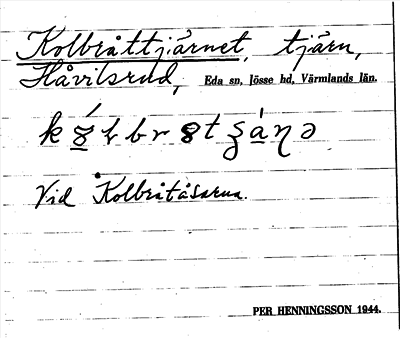 Kolbråttjärnet, tjärn,
Håvilsrud, Eda sn, Jösse hd, Värmlands län.
Vid Kolbråtåsarna.
PER HENNINGSSON 1944.